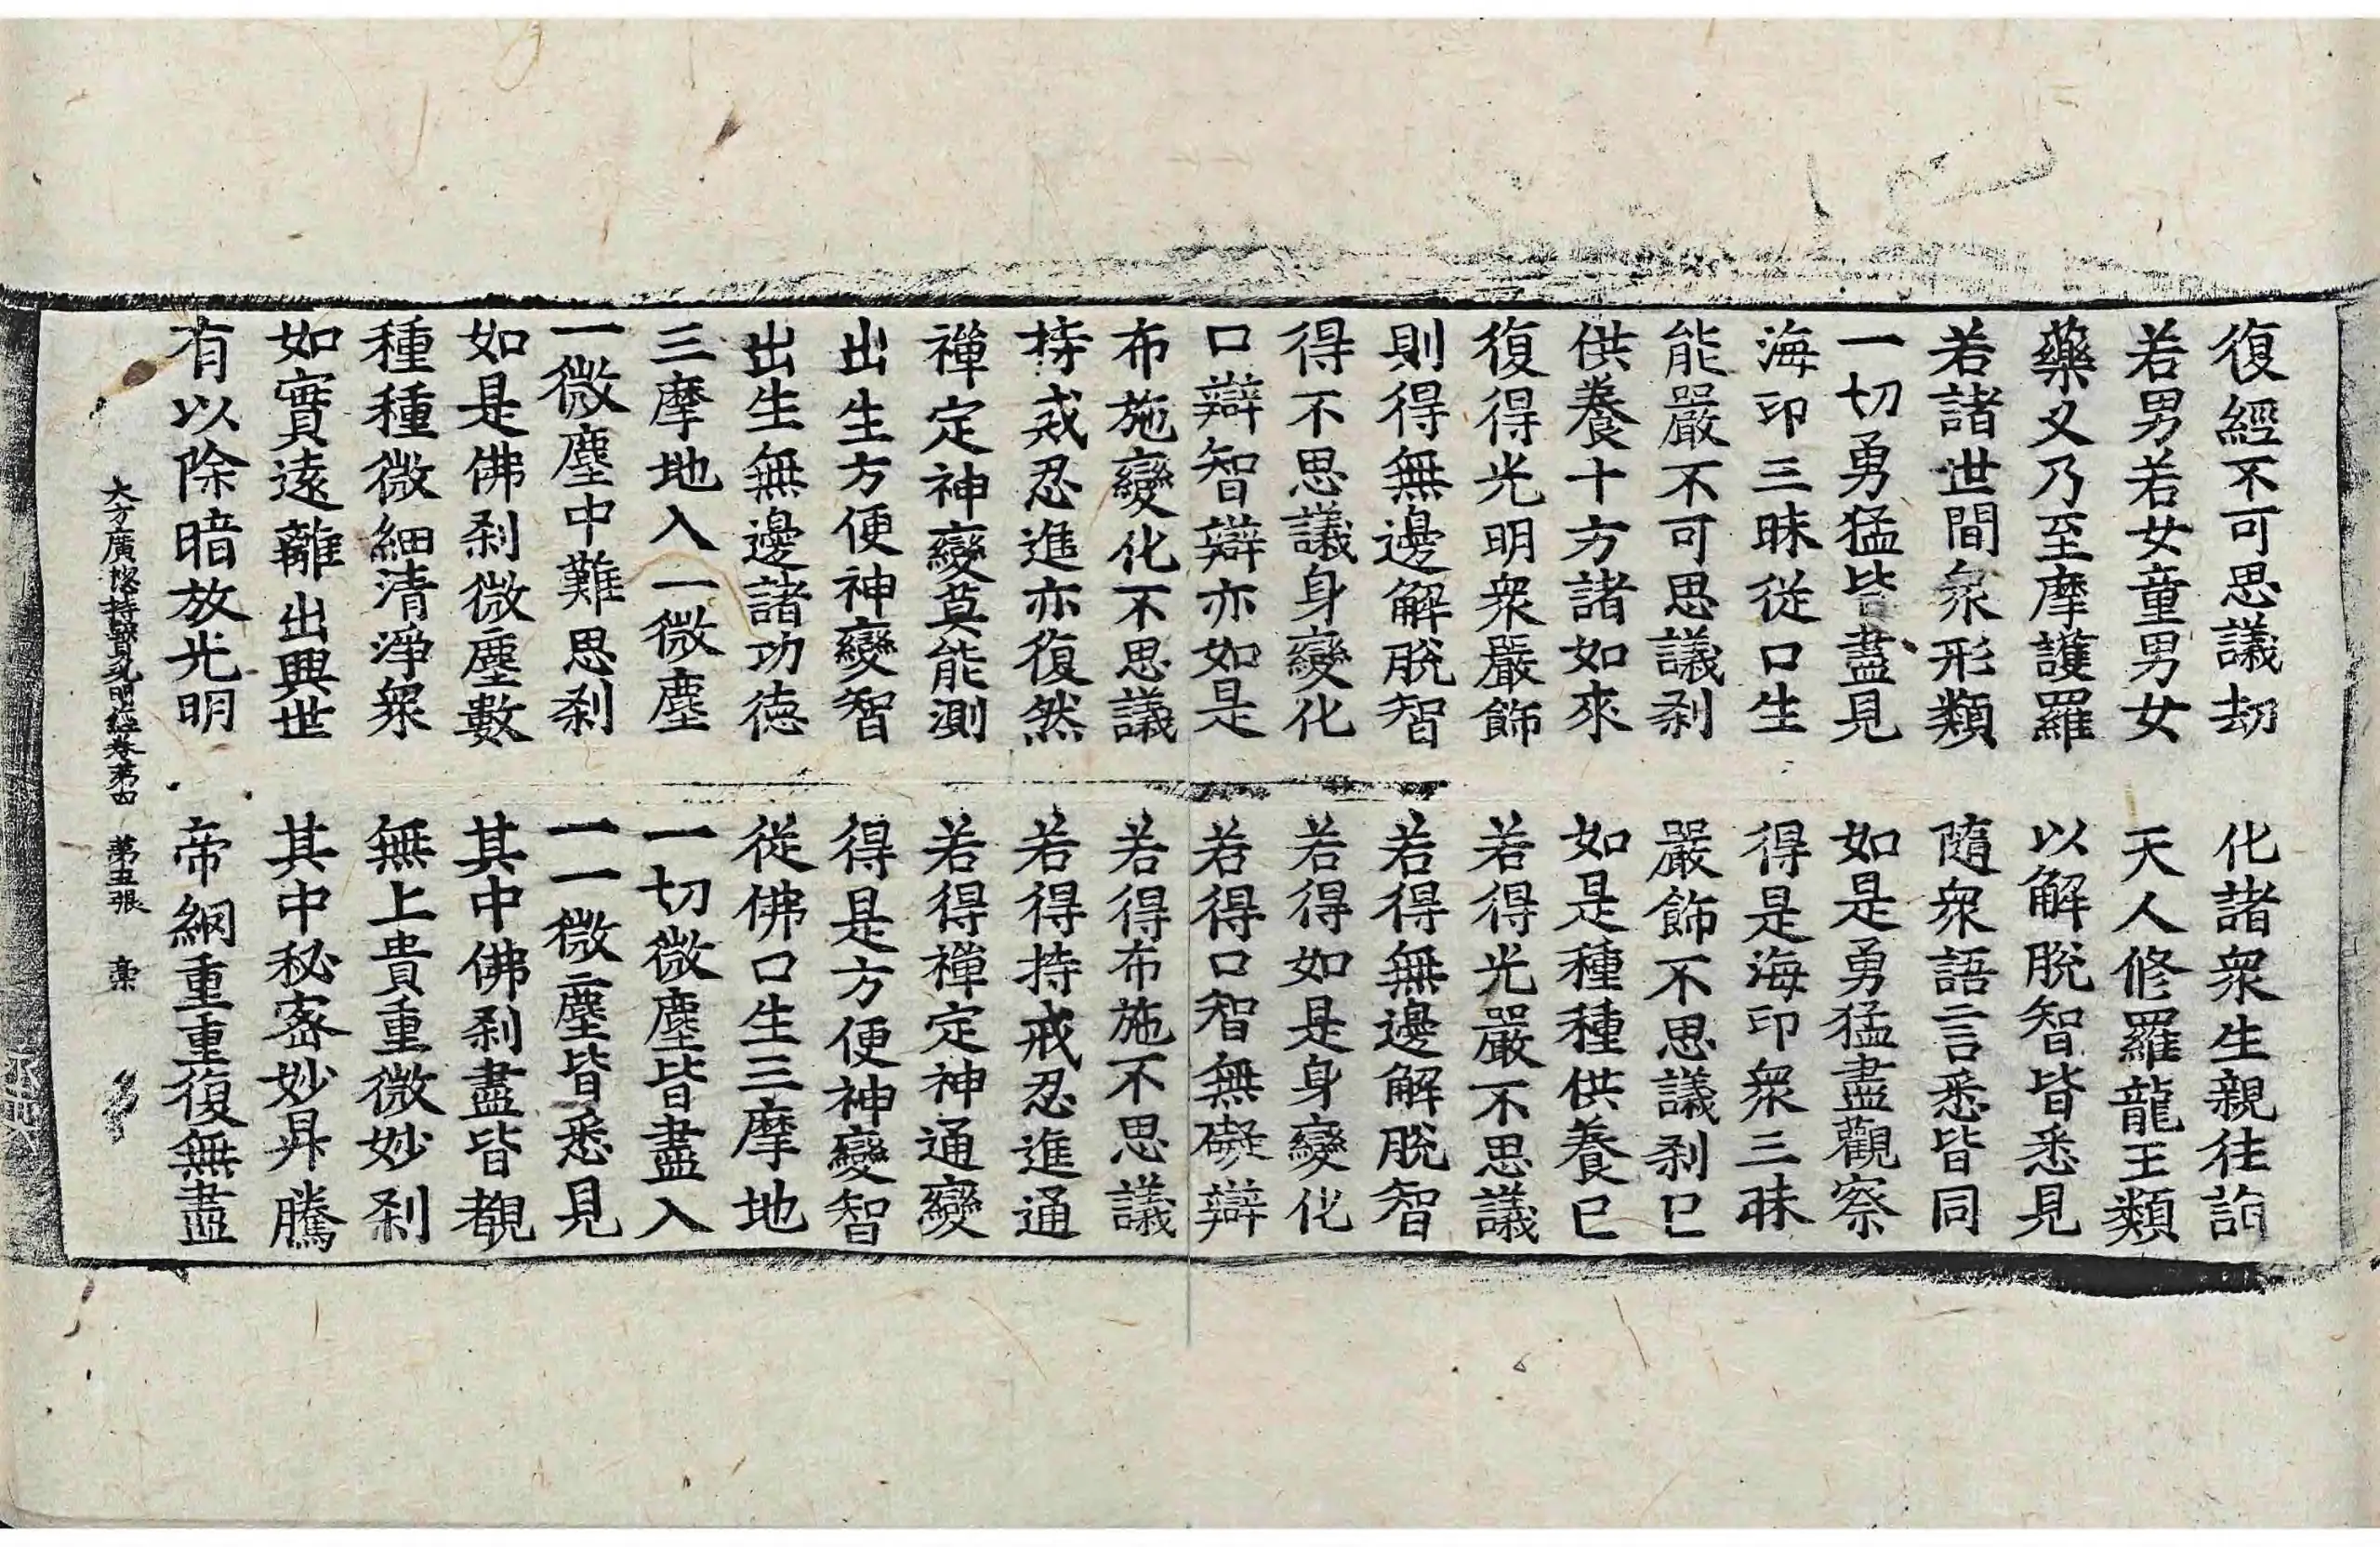 復經不可思議劫　化諸衆生親往詣
若男若女童男女　天人修羅龍王類
藥叉乃至摩護羅　以解脫智皆悉見
若諸世間衆形類　隨衆語言悉皆同
一切勇猛皆盡見　如是勇猛盡觀察
海印三昧從口生　得是海印衆三昧
能嚴不可思議刹　嚴飾不思議刹已
供養十方諸如來　如是種種供養已
復得光明衆嚴飾　若得光嚴不思議
則得無邊解脫智　若得無邊解脫智
得不思議身變化　若得如是身變化
口辯智辯亦如是　若得口智無礙辯
布施變化不思議　若得布施不思議
持戒忍進亦復然　若得持戒忍進通
禪定神變莫能測　若得禪定神通變
出生方便神變智　得是方便神變智
出生無邊諸功德　從佛口生三摩地
三摩地入一微塵　一切微塵皆盡入
一微塵中難思刹　一一微塵皆悉見
如是佛刹微塵數　其中佛刹盡皆覩
種種微細清淨衆　無上貴重微妙刹
如實遠離出興世　其中秘密妙昇騰
有以除暗放光明　帝網重重復無盡
大方廣揔持寶光明經卷第四　第五張　槀